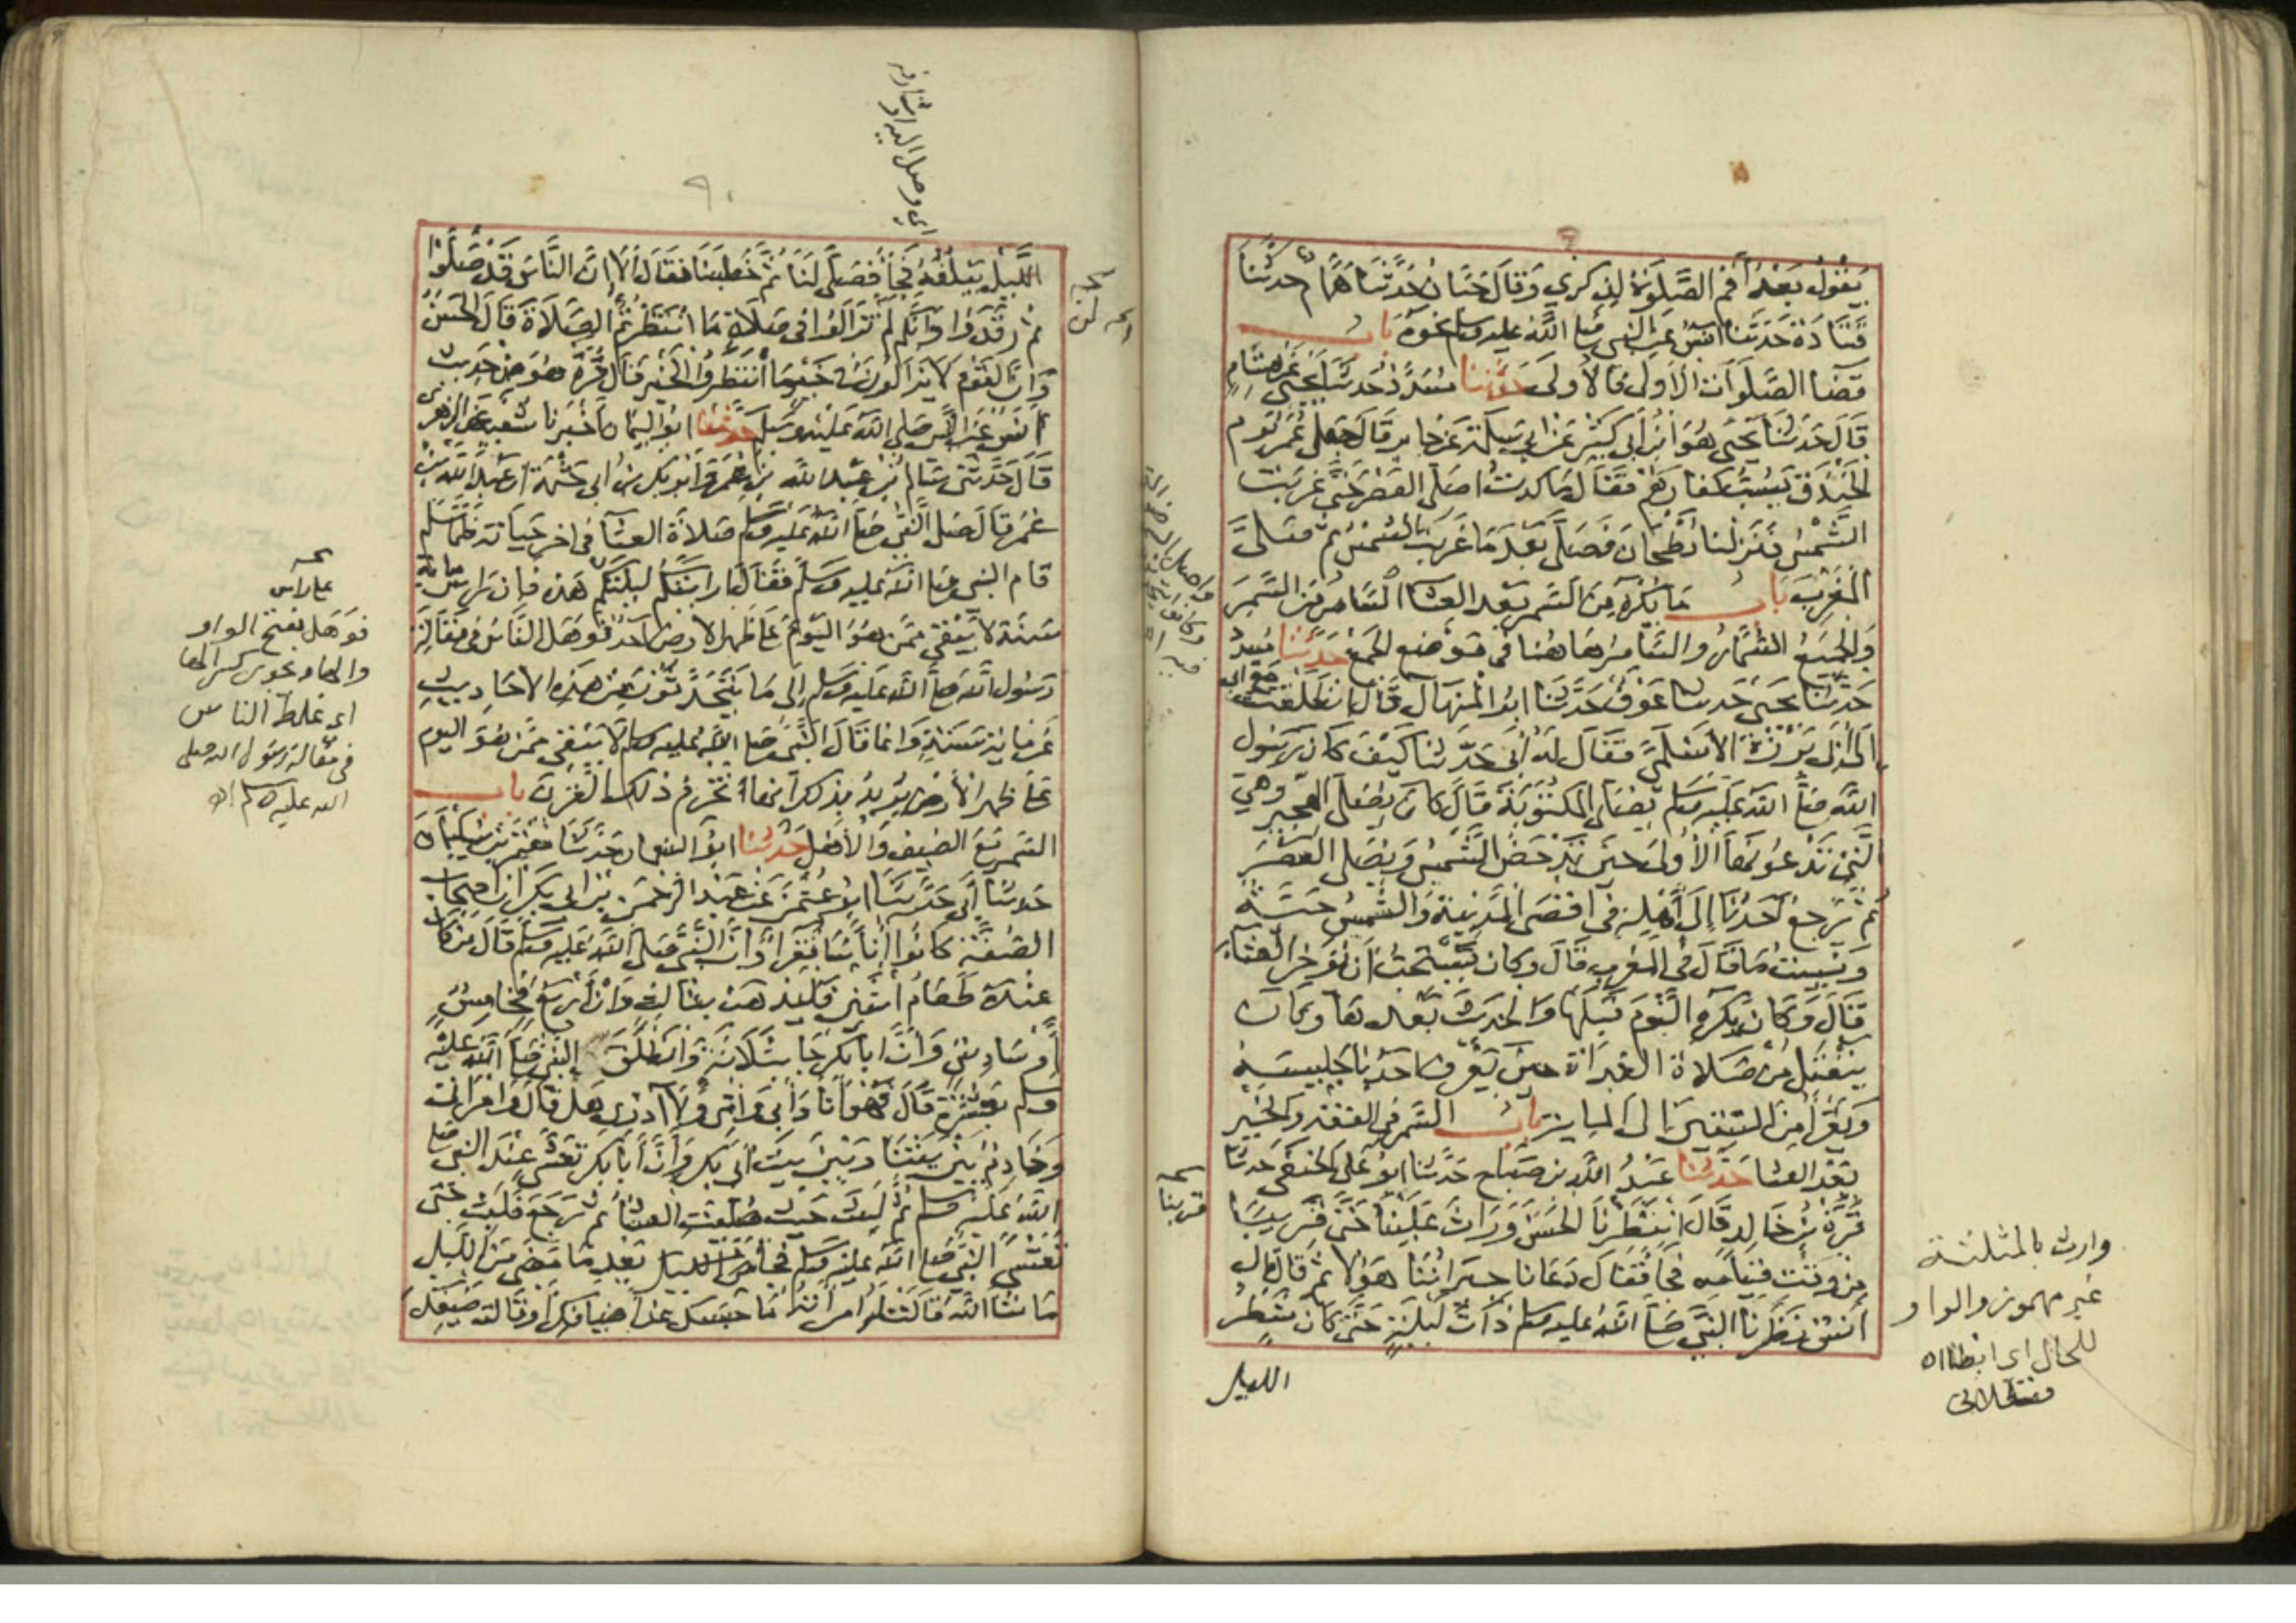 يقول بعد أقم الصلوة لذكري وقال حبان حدثنا همام حدثنا
قتادة حدثنا انس عن النبي صلى الله عليه وسلم نحوه باب
قضا الصلوات الأولى فالأولى حدثنا مسدد حدثنا يحيى عن هشام
قال حدثنا يحيى هو ابن أبي كثير عن ابي سلمة عن جابر قال جعل عمر يوم
الخندق يسب كفارهم فقال ما كدت اصلى العصر حتى غربت
الشمس فنزلنا بطحان فصلى بعد ما غربت الشمس ثم صلى
المغرب باب ما يكره من السمر بعد العشا السامر من السمر
والجميع السمار والسامر هاهنا في موضع الجمع حدثنا مسدد
حدثنا يحيى حدثنا عوف حدثنا ابو المنهال قال انطلقت مع ابي
الى ابى برزة الاسلمي فقال له أبى حدثنا كيف كان رسول
الله صلى الله عليه وسلم يصلى المكتوبة قال كان يصلى الهجير وهي
التي تدعونها الأولى حين تدحض الشمس ويصلى العصر
ثم يرجع أحدنا إلى أهله في أقصى المدينة والشمس حية
ونسيت ما قال في المغرب قال وكان يستحب أن يؤخر العشاء
قال وكان يكره النوم قبلها والحديث بعدها وكان
ينفتل من صلاة الغداة حين يعرف احدنا جليسه
ويقرأ من الستين إلى الماية باب السمر في الفقه والخير
بعد العشا حدثنا عبد الله بن صباح حدثنا ابو على الحنفى حدثنا
قرة بن خالد قال انتظرنا الحسن وراث علينا حتى قريبا
من وقت قيامه فجا فقال دعانا جيراننا هؤلا ثم قال قال
أنس نظرنا النبي صلى الله عليه وسلم ذات ليلة حتى كان شطر
الليل
قربنا
وارث بالمثلثة
غير مهموز والواو
للحال اى ابطا اه
قسطلانى
الليل يبلغه فجأ فصلى لنا ثم خطبنا فقال ألا ان الناس قد صلوا
ثم رقدوا وانكم لم تزالوا في صلاة ما انتظرتم الصلاة قال الحسن
وان القوم لا يزالون في خير ما انتظروا الخير قال قرة هو من حديث
أنس عن النبي صلى الله عليه وسلم حدثنا ابو اليمان أخبرنا شعيب عن الزهرى
قال حدثنى سالم بن عبد الله بن عمر وأبو بكر بن أبى حثمة أن عبد الله بن
عمر قال صلى النبي صلى الله عليه وسلم صلاة العشا في اخر حياته فلما سلم
قام النبي صلى الله عليه وسلم فقال ارايتكم ليلتكم هذه فان راس ماية
سنة لا يبقى ممن هو اليوم على ظهر الارض احد فوهل الناس في مقالة
رسول الله صلى الله عليه وسلم إلى ما يتحدثون من هذه الاحاديث
عن ماية سنة وانما قال النبي صلى الله عليه وسلم لا يبقى ممن هو اليوم
على ظهر الأرض يريد بذلك انها تخرم ذلك القرن باب
السمر مع الضيف والأهل حدثنا ابو النعمان حدثنا معتمر بن سليمان
حدثنا أبى حدثنا ابو عثمن عن عبد الرحمن بن ابى بكر ان اصحاب
الصفة كانوا اناسا فقرا وأن النبي صلى الله عليه وسلم قال من كان
عنده طعام اثنين فليذهب بثالث وان أربع فخامس
أو سادس وأن ابا بكر جا بثلاثة وانطلق النبي صلى الله عليه
وسلم بعشرة قال فهو أنا وأبى وأمى ولا أدرى هل قال وامراتى
وخادم بين بيتنا وبين بيت أبى بكر وأن أبا بكر تعشى عند النبي صلى
الله عليه وسلم ثم لبث حيث صليت العشا ثم رجع فلبث حتى
تعشى النبي صلى الله عليه وسلم فجا بعد ما مضى من الليل
ما شا الله قالت له امراته ما حبسك عن اضيافك أو قالت ضيفك
اى وصل اليه او شارفه
لن
على راس
فوهل بفتح الواو
والها ويجوز كسر الها
اى غلط الناس
في مقالة رسول الله صلى
الله عليه وسلم اه
٩٠